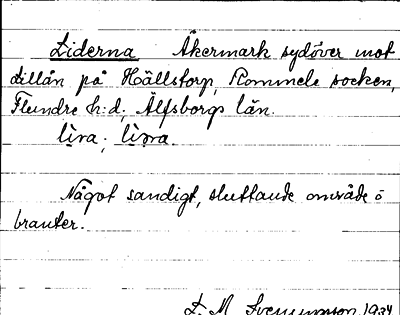 Liderna Åkermark sydöver mot
Lillån på Hällstorp, Rommele socken,
Flundre h:d, Älfsborgs län.
lìra; lìrna.
Något sandigt, sluttande område o
branter.
L. M. Svenungsson 1934